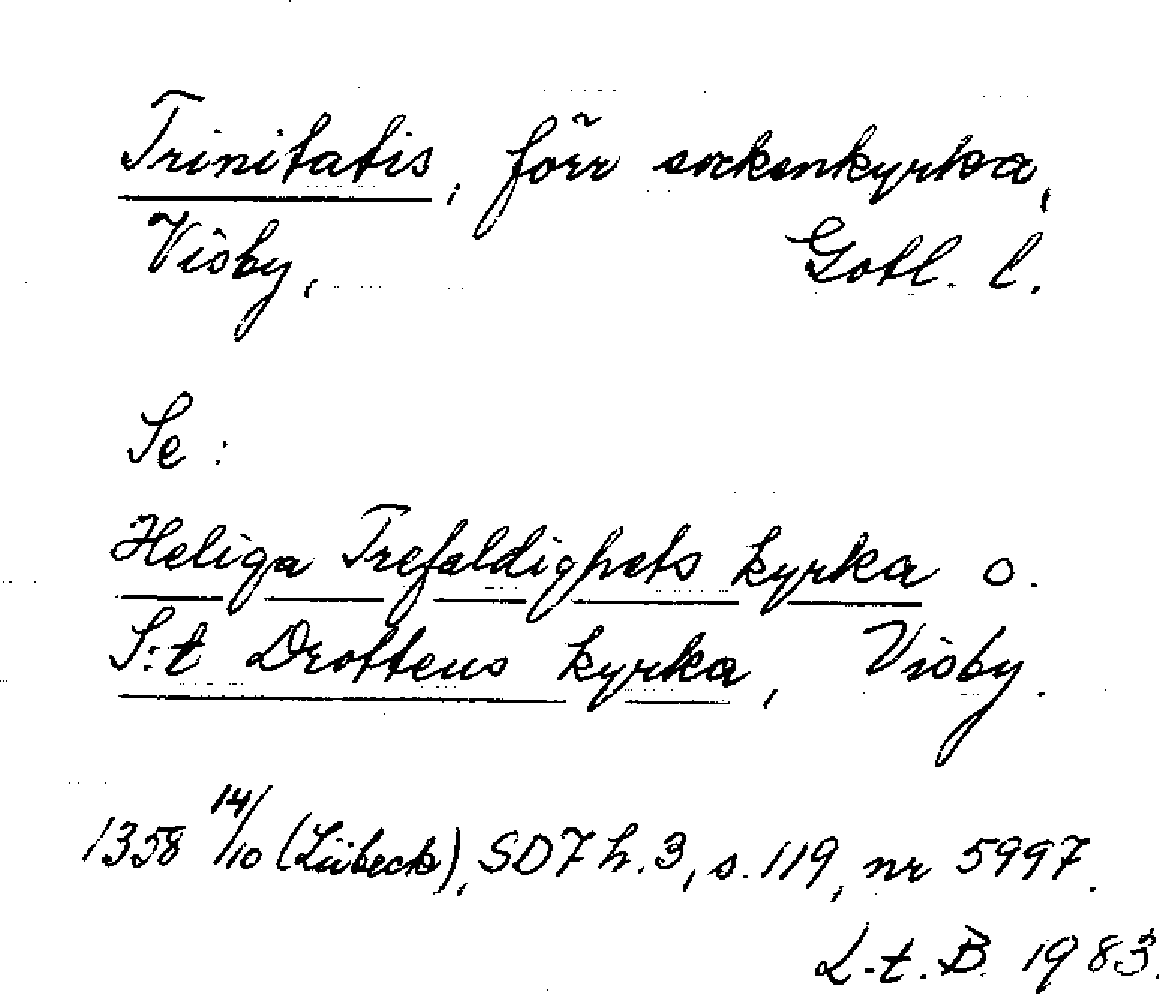 Trinitatis, förr sockenkyrka,
Visby, Gotl. l.
Se:
Heliga Trefaldighets kyrka o.
S:t Drottens kyrka, Visby.
1358 14/10 (Lübeck), SD7 h. 3, s. 119, nr 5997.
L-t. B. 1983.